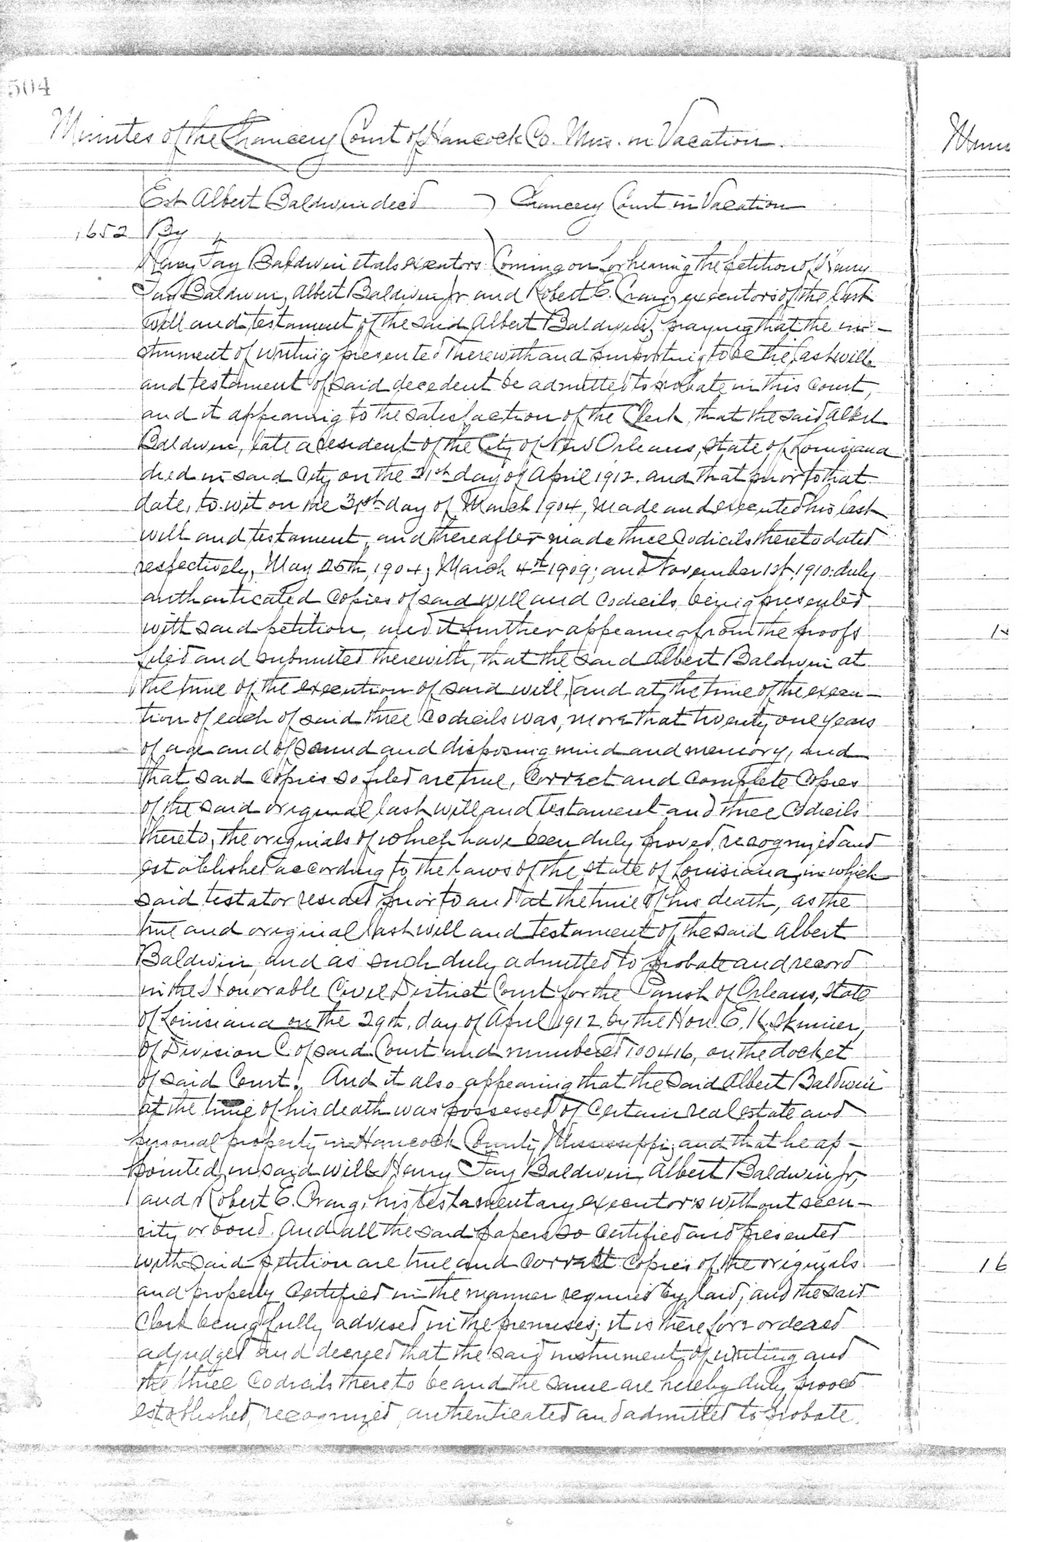 504
Minutes of the Chancery Court of Hancock Co. Miss. in Vacation.
Est Albert Baldwin decd ) Chancery Court in Vacation
1652 By
Harry Fay Baldwin et als executors ) Coming on for hearing the petition of Harry
Fay Baldwin, Albert Baldwin Jr and Robert E. Craig, executors of the last
will and testament of the said Albert Baldwin, praying that the in-
strument of writing presented therewith and purporting to be the last will
and testament of said decedent be admitted to probate in this court,
and it appearing to the satisfaction of the Clerk, that the said Albert
Baldwin, late a resident of the City of New Orleans, State of Louisiana
died in said City on the 21st day of April 1912. and that prior to that
date, to wit on the 31st day of March 1904, made and executed his last
will and testament, and thereafter made three codicils thereto dated
respectively, May 25th, 1904; March 4th 1909; and November 1st. 1910. duly
authenticated copies of said will and codicils being presented
with said petition, and it further appearing from the proofs
filed and submitted therewith, that the said Albert Baldwin at
the time of the execution of said will, and at the time of the execu-
tion of each of said three codicils was, more that twenty one years
of age and of sound and disposing mind and memory, and
that said copies so filed are true, correct and complete copies
of the said original last will and testament and three codicils
thereto, the originals of which have been duly proved, recognized and
established according to the laws of the state of Louisiana, in which
said testator resided prior to and at the time of his death, as the
true and original last will and testament of the said Albert
Baldwin, and as such duly admitted to probate and record
in the Honorable Civil District Court for the Parish of Orleans, State
of Louisiana on the 29th, day of April 1912 by the Hon. E. K. Skinner,
of Division C. of said Court and numbered 100416, on the docket
of said Court. And it also appearing that the said Albert Baldwin
at the time of his death was possessed of certain real estate and
personal property in Hancock County, Mississippi, and that he ap-
pointed, in said will Harry Fay Baldwin, Albert Baldwin Jr,
and Robert E. Craig, his testamentary executors without secu-
rity or bond. And all the said papers so certified and presented
with said petition are true and correct copies of the originals
and properly certified in the manner required by law; and the said
Clerk being fully advised in the premises; it is therefore ordered
adjudged and decreed that the said instrument of writing and
the three codicils thereto be and the same are hereby duly proved
established, recognized, authenticated and admitted to probate.
16